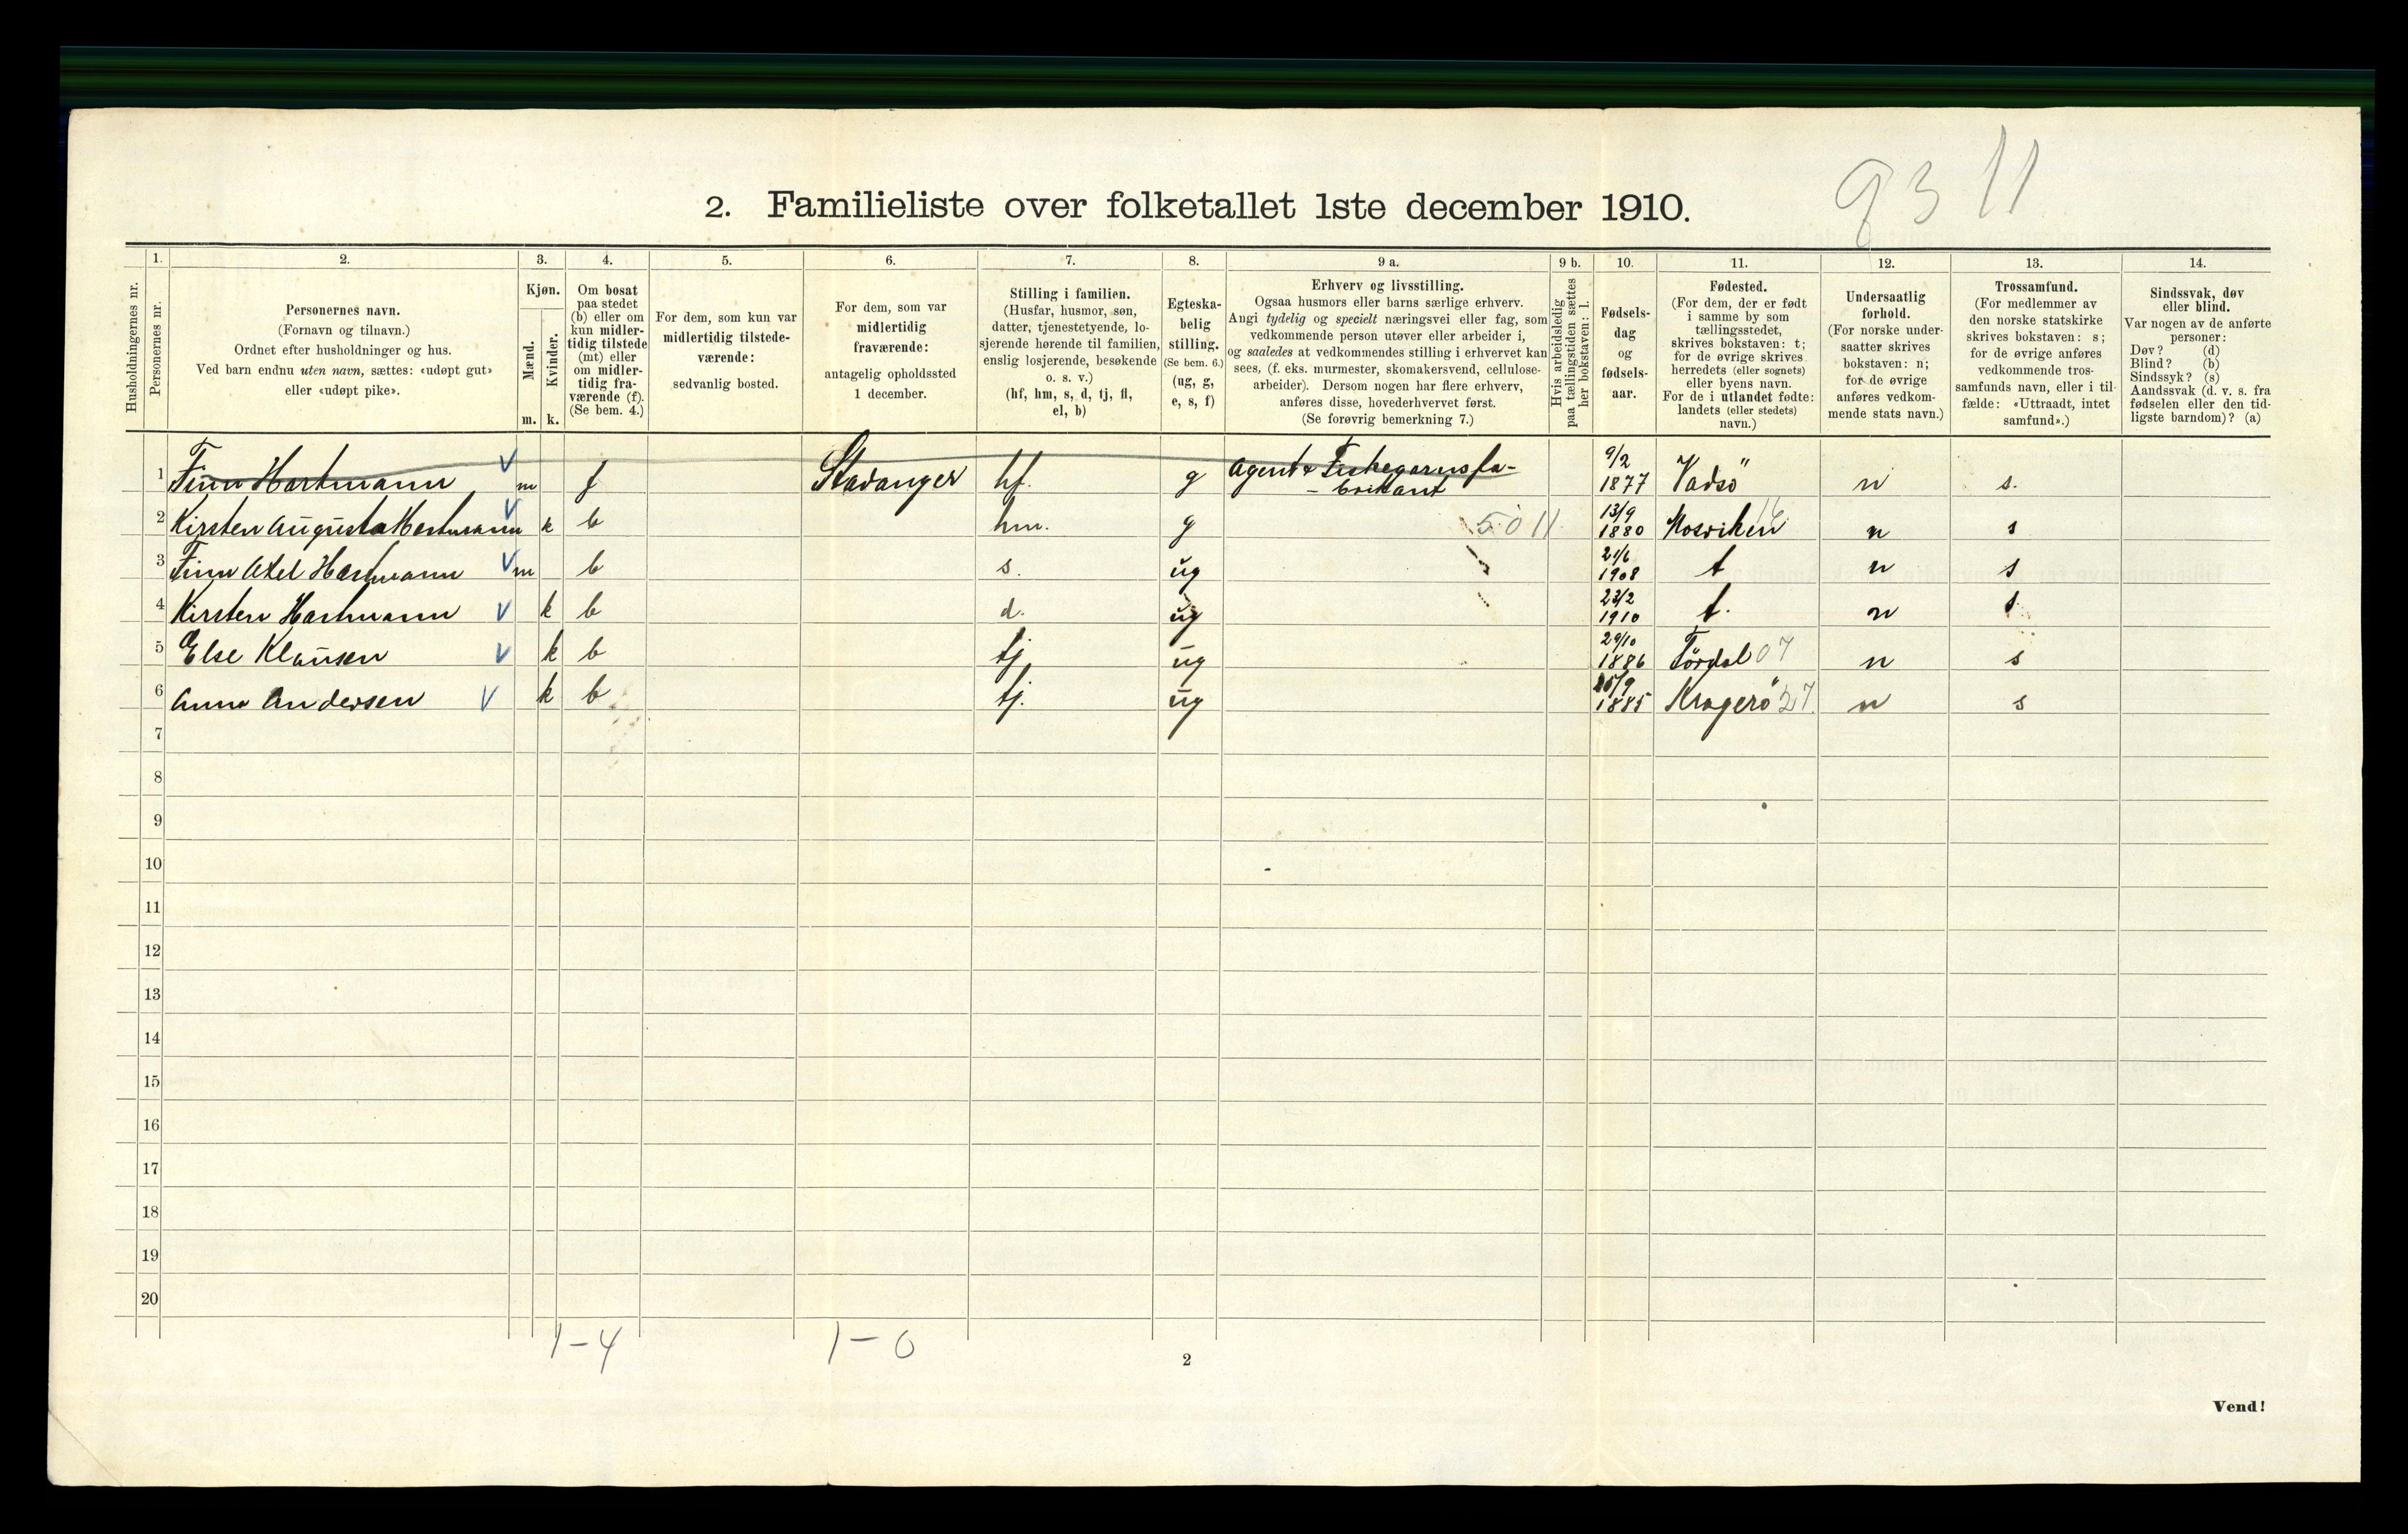 9311
2. Familieliste over folketallet 1ste december 1910.
Husholdningernes nr.
1.
Personernes nr.
2.
Personernes navn.
(Fornavn og tilnavn.)
Ordnet efter husholdninger og hus.
Ved barn endnu uten navn, sættes: «udøpt gut»
eller «udøpt pike».
3.
Kjøn.
Mænd.
Kvinder.
m. k.
4.
Om bosat
paa stedet
(b) eller om
kun midler-
tidig tilstede
(mt) eller
om midler-
tidig fra-
værende (f).
(Se bem. 4.)
5.
For dem, som kun var
midlertidig tilstede-
værende:
sedvanlig bosted.
6.
For dem, som var
midlertidig
fraværende:
antagelig opholdssted
1 december.
7.
Stilling i familien.
(Husfar, husmor, søn,
datter, tjenestetyende, lo-
sjerende hørende til familien,
enslig losjerende, besøkende
o. s. v.)
(hf, hm, s, d, tj, fl,
el, b)
8.
Egteska-
belig
stilling.
(Se bem. 6.)
(ug, g,
e, s, f)
9 a.
Erhverv og livsstilling.
Ogsaa husmors eller barns særlige erhverv.
Angi tydelig og specielt næringsvei eller fag, som
vedkommende person utøver eller arbeider i,
og saaledes at vedkommendes stilling i erhvervet kan
sees, (f. eks. murmester, skomakersvend, cellulose-
arbeider). Dersom nogen har flere erhverv,
anføres disse, hovederhvervet først.
(Se forøvrig bemerkning 7.)
9 b.
Hvis arbeidsledig
paa tællingstiden sættes
her bokstaven: l.
10.
Fødsels-
dag
og
fødsels-
aar.
11.
Fødested.
(For dem, der er født
i samme by som
tællingsstedet,
skrives bokstaven: t;
for de øvrige skrives
herredets (eller sognets)
eller byens navn.
For de i utlandet fødte:
landets (eller stedets)
navn.)
12.
Undersaatlig
forhold.
(For norske under-
saatter skrives
bokstaven: n;
for de øvrige
anføres vedkom-
mende stats navn.)
13.
Trossamfund.
(For medlemmer av
den norske statskirke
skrives bokstaven: s;
for de øvrige anføres
vedkommende tros-
samfunds navn, eller i til-
fælde: «Uttraadt, intet
samfund».)
14.
Sindssvak, døv
eller blind.
Var nogen av de anførte
personer:
Døv? (d)
Blind? (b)
Sindssyk? (s)
Aandssvak (d. v. s. fra
fødselen eller den tid-
ligste barndom)? (a)
1 Finn Hartmann m f Stavanger hf. g Agent & Fiskegarnsfa-brikant 9/2 1877 Vadsö n s.
2 Kirsten Augusta Hartmann k b hm. g 5011 13/9 1880 Mosviken 16 n s
3 Finn Axel Hartmann m b s. ug 21/6 1908 t n s
4 Kirsten Hartmann k b d. ug 23/2 1910 t. n s
5 Else Klausen k b tj ug 29/10 1886 Tördal 07 n s
6 Anna Andersen k b tj. ug 1885 Kragerö 27. n s
7
8
9
10
11
12
13
14
15
16
17
18
19
20
1-4 1-0
2
Vend!